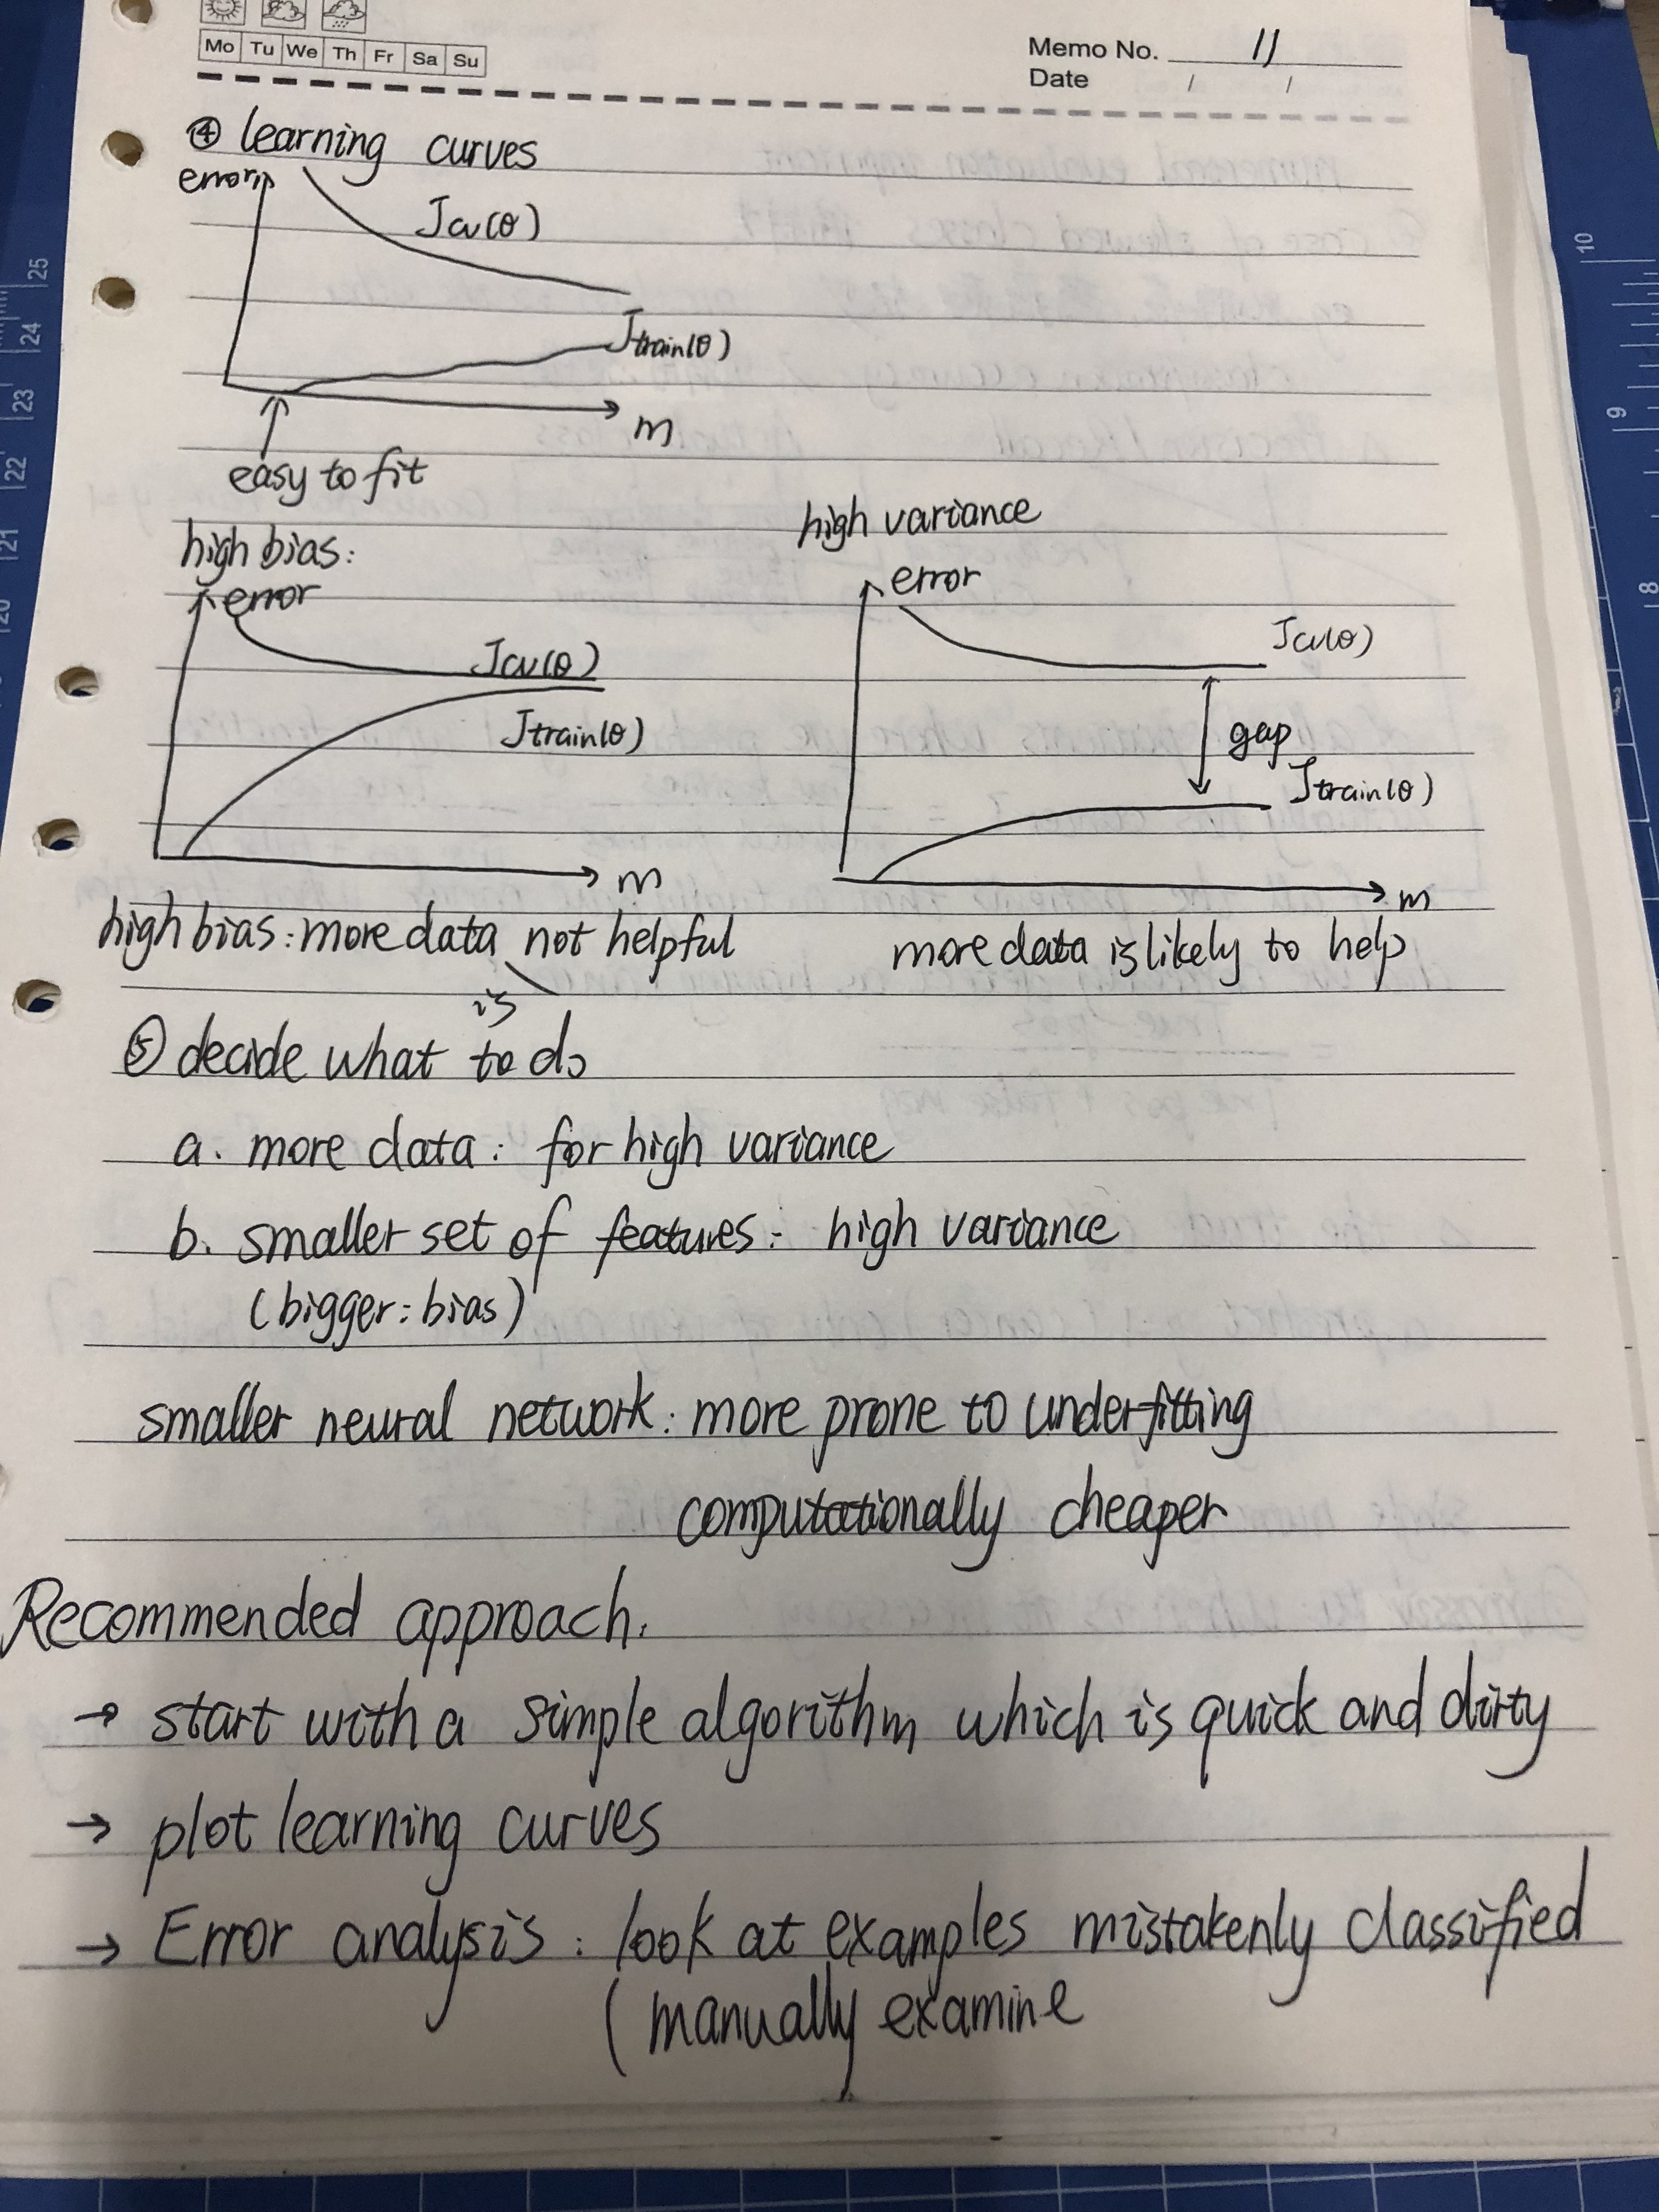 Mo Tu We Th Fr Sa Su
Memo No. 11
Date / /
④ learning curves
error
Jcv(θ)
Jtrain(θ)
m
easy to fit
high bias:
error
Jcv(θ)
Jtrain(θ)
m
high variance
error
Jcv(θ)
gap
Jtrain(θ)
m
high bias: more data is not helpful
more data is likely to help
⑤ decide what to do
a. more data: for high variance
b. smaller set of features: high variance
(bigger: bias)
smaller neural network: more prone to underfitting
computationally cheaper
Recommended approach.
→ start with a simple algorithm which is quick and dirty
→ plot learning curves
→ Error analysis: look at examples mistakenly classified
(manually examine
25
24
23
22
21
20
10
9
8